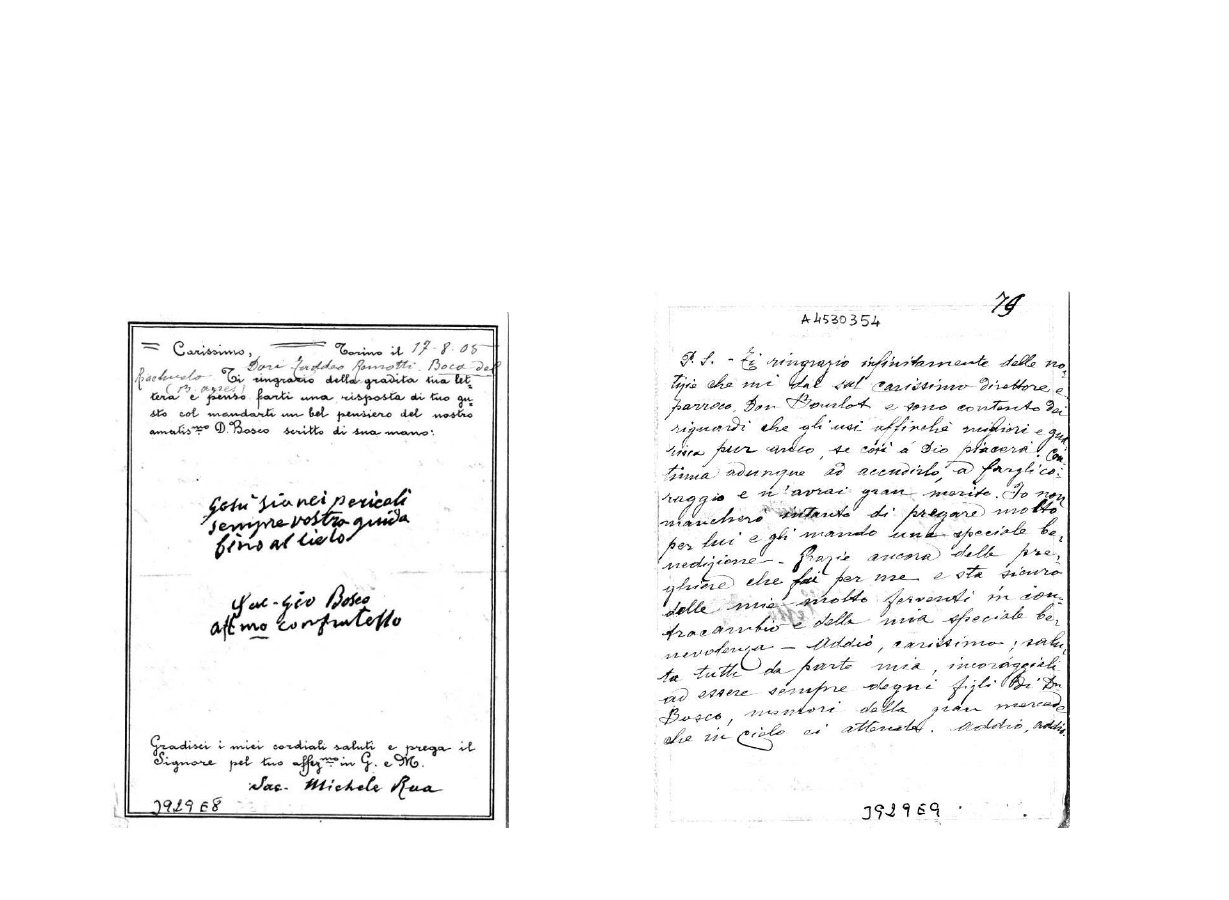 Carissimo, Torino il 17-8-05
Don Taddeo Remotti. Boca del
Riachuelo Ti ringrazio della gradita tua let-
(B. ayres)
tera e penso farti una risposta di tuo gu-
sto col mandarti un bel pensiero del nostro
amatis.mo D. Bosco scritto di sua mano:
Gesù sia nei pericoli
sempre vostra guida
fino al cielo
Sac - Gio Bosco
aff.mo confratello
Gradisci i miei cordiali saluti e prega il
Signore pel tuo affez.mo in G. e M.
Sac. Michele Rua
3929E8
79
A4530354
P. S. - Ti ringrazio infinitamente delle no-
tizie che mi dai sul carissimo Direttore e
parroco, Don Bourlot e sono contento dei
riguardi che gli usi affinchè migliori e gua-
risca pur anco, se così a Dio piacerà. Con-
tinua adunque ad accudirlo, a fargli co-
raggio e n'avrai gran merito. Io non
mancherò intanto di pregare molto
per lui e gli mando una speciale be-
nedizione - Grazie ancora delle pre-
ghiere che fai per me e sta sicuro
delle mie molto ferventi in con-
traccambio e della mia speciale be-
nevolenza - Addio, carissimo, salu-
ta tutti da parte mia, incoraggiali
ad essere sempre degni figli di Dn
Bosco, memori della gran mercede
che in cielo ci attende. Addio, addio.
3929E9